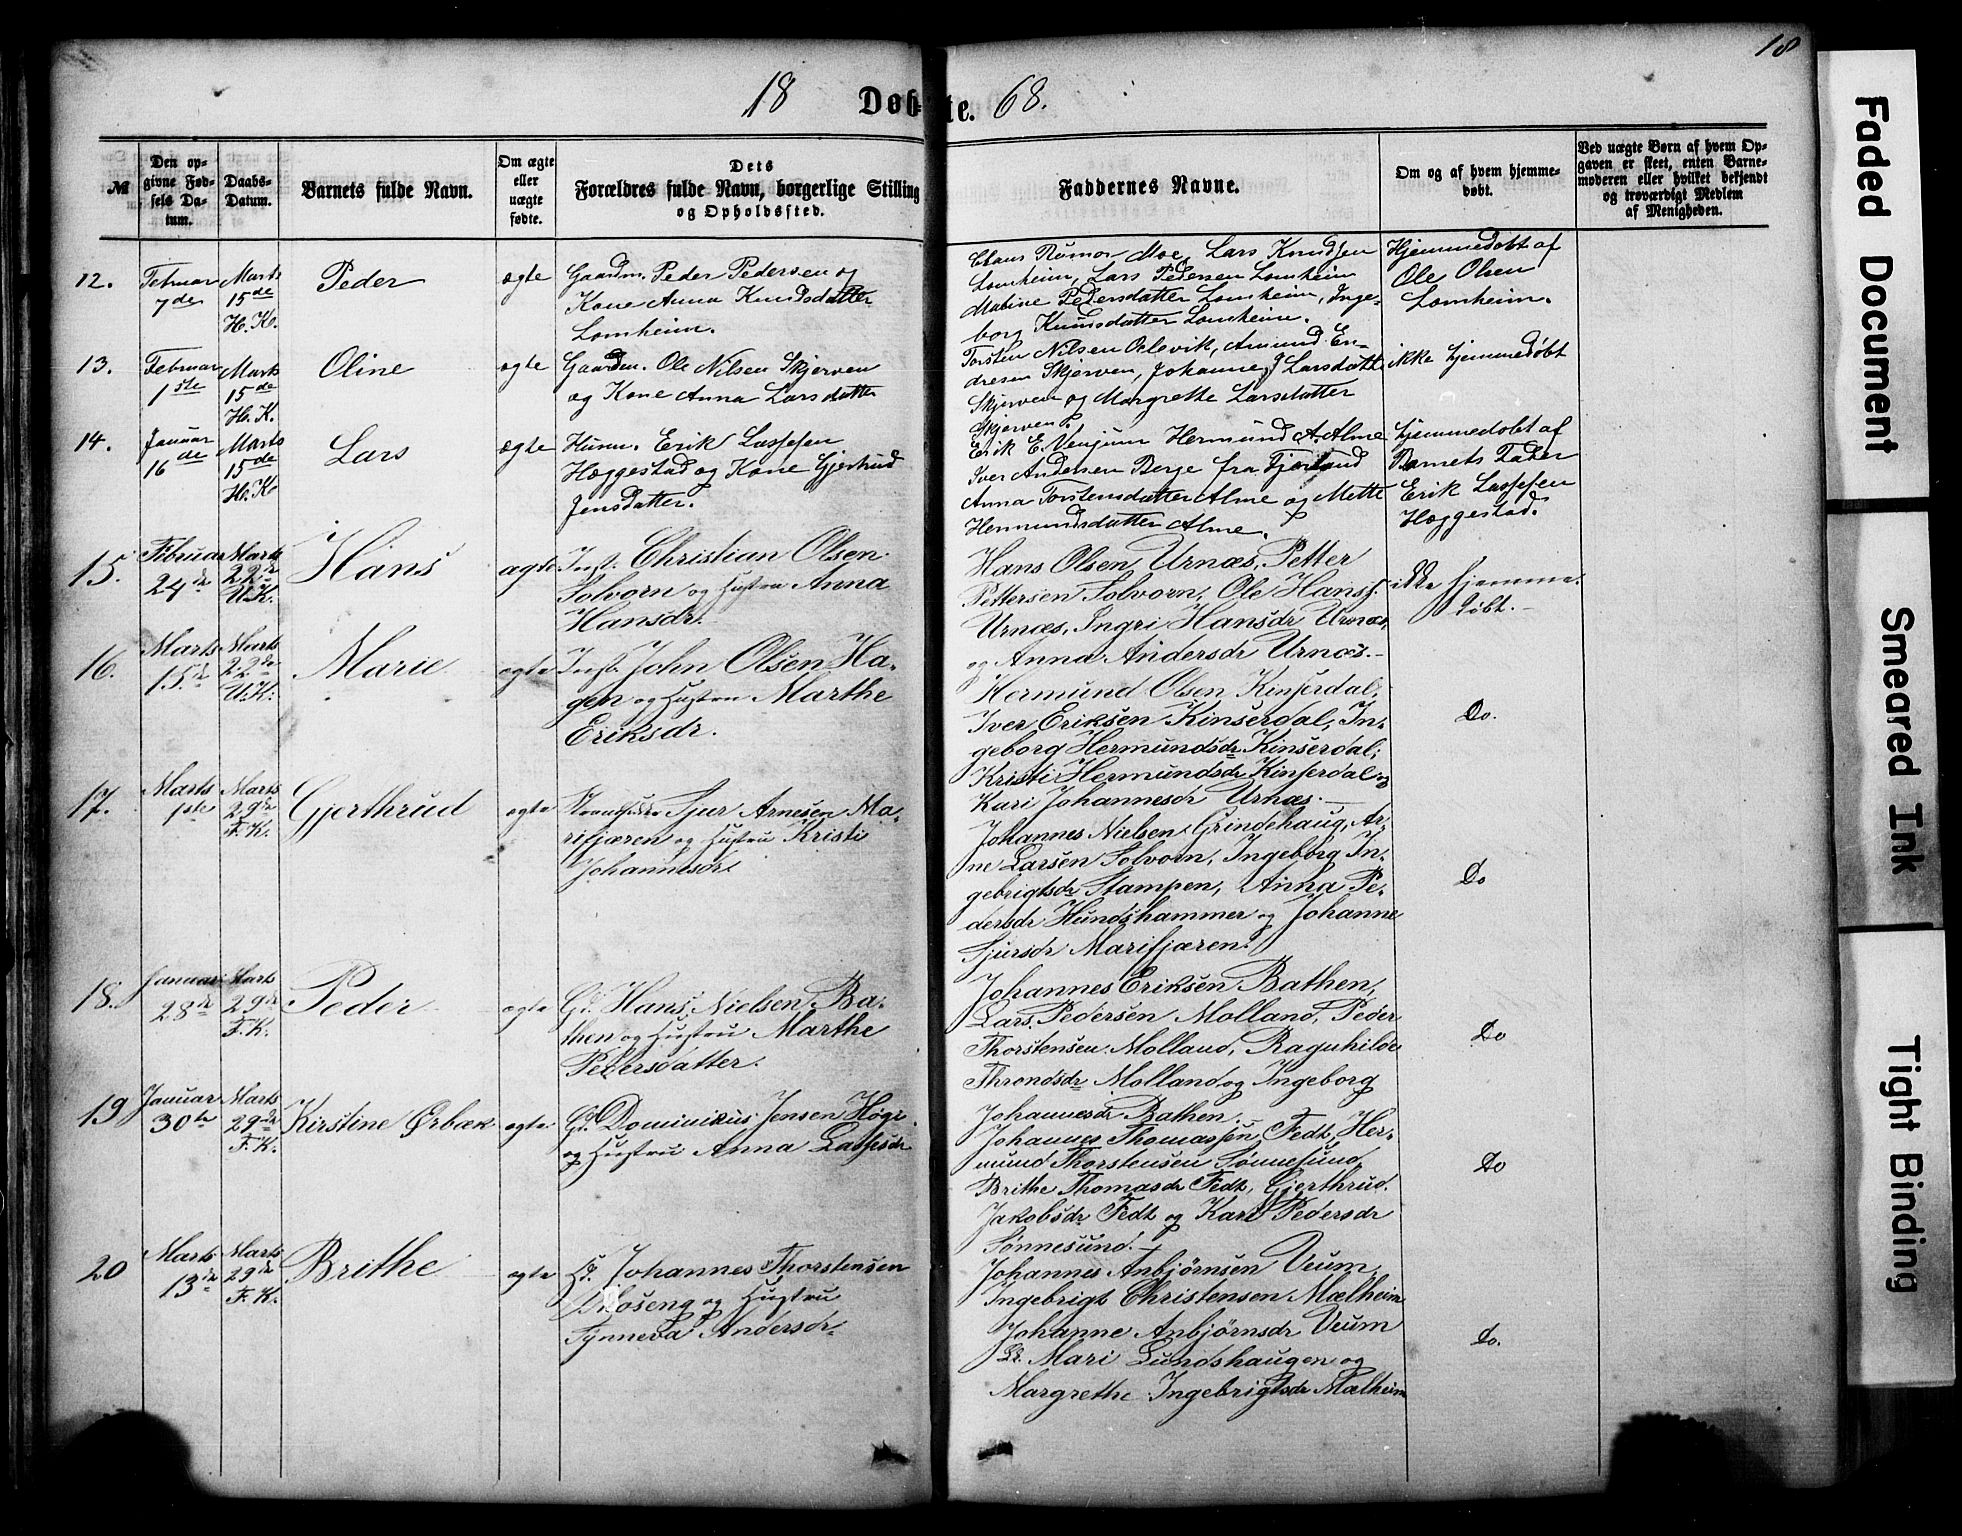 18
18 Døbte. 68.
№
Den opgivne Fødsels Datum.
Daabs-Datum.
Barnets fulde Navn.
Om ægte eller uægte fødte.
Dets Forældres fulde Navn, borgerlige Stilling og Opholdssted.
Faddernes Navne.
Om og af hvem hjemmedøbt.
Ved uægte Børn af hvem Opgaven er skeet, enten Barnemoderen eller hvilket bekjendt og troværdigt Medlem af Menigheden.
12. Februar 7de
Marts 15de H. K.
Peder
ægte
Gaardm. Peder Pedersen og
Kone Anna Knudsdatter
Lomheim.
Claus Rumor Moe, Lars Knudsen
Lomheim, Lars Pedersen Lomheim
Pedersdatter Lomheim, Inge-
borg Knudsdatter Lomheim.
Hjemmedøbt af
Ole Olsen
Lomheim.
13. Februar 1ste
Marts 15de H. K.
Oline
ægte
Gaardm. Ole Nilsen Skjerven
og Kone Anna Larsdatter
Torsten Nilsen Orlevik, Amund En-
dresen Skjerven, Johanne Larsdatter
Skjerven og Margrethe Larsdatter
Skjerven.
ikke hjemmedøbt
14. Januar 16de
Marts 15de H. K.
Lars
ægte
Husm. Erik Lassesen
Hæggestad og Kone Gjertrud
Jensdatter.
Erik E. Venjum Hermund A. Alme
Iver Andersen Berge fra Fjærland
Anna Torstensdatter Alme og Mette
Hermundsdatter Alme.
hjemmedøbt af
Barnets Fader
Erik Lassesen
Hæggestad.
15. Februar 24de
Marts 22de U. K.
Hans
ægte
Inst. Christian Olsen
Solvorn og Hustru Anna
Hansdr.
Hans Olsen Urnæs, Petter
Pettersen Solvorn, Ole Hanss.
Urnæs, Ingri Hansdr Urnæs,
og Anna Andersdr Urnæs.
ikke hjemme-
døbt.
16. Marts 15de
Marts 22de U. K.
Marie
ægte
Inst. John Olsen Ha-
gen og Hustru Marthe
Eriksdr.
Hermund Olsen Kinserdal,
Iver Eriksen Kinserdal, In-
geborg Hermundsdr Kinserdal,
Kristi Hermundsdr Kinserdal og
Kari Johannesdr Urnæs.
Do.
17. Marts 1ste
Marts 29de F. K.
Gjerthrud
ægte
Sjur Arnesen Ma-
rifjæren og Hustru Kristi
Johannesdr.
Johannes Nielsen Grindehaug, Ar-
ne Larsen Solvorn, Ingeborg In-
gebrigtsdr Stampen, Anna Pe-
dersdr Hundshammer og Johanne
Sjursdr Marifjæren.
Do
18. Januari 28de
Marts 29de F. K.
Peder
ægte
Gd. Hans Nielsen Ba-
then og Hustru Marthe
Pedersdatter.
Johannes Eriksen Bathen,
Lars Pedersen Molland, Peder
Thorstensen Molland, Ragnhilde
Throndsdr Molland og Ingeborg
Johannesdr Bathen.
Do
19 Januar 30te
Marts 29de F. K.
Kirstine Ørbæk
ægte
Gd. Dominikus Jensen Høgi
og Hustru Anna Lassesdr
Johannes Thomassen Fedt, Her-
mund Thorstensen Sønnesund,
Brithe Thomasdr Fedt, Gjerthrud
Jakobsdr Fedt og Kari Pedersdr
Sønnesund.
Do
20 Marts 13de
Marts 29de F. K.
Brithe
ægte
Hd. Johannes Thorstensen
Moseng og Hustru
Synneva Andersdr
Johannes Anbjørnsen Veum,
Ingebrigt Christensen Mælheim
Johanne Anbjørnsdr Veum
Mari Lundshaugen og
Margrethe Ingebrigtsdr Mælheim
Do.
Faded Document
Smeared Ink
Tight Binding